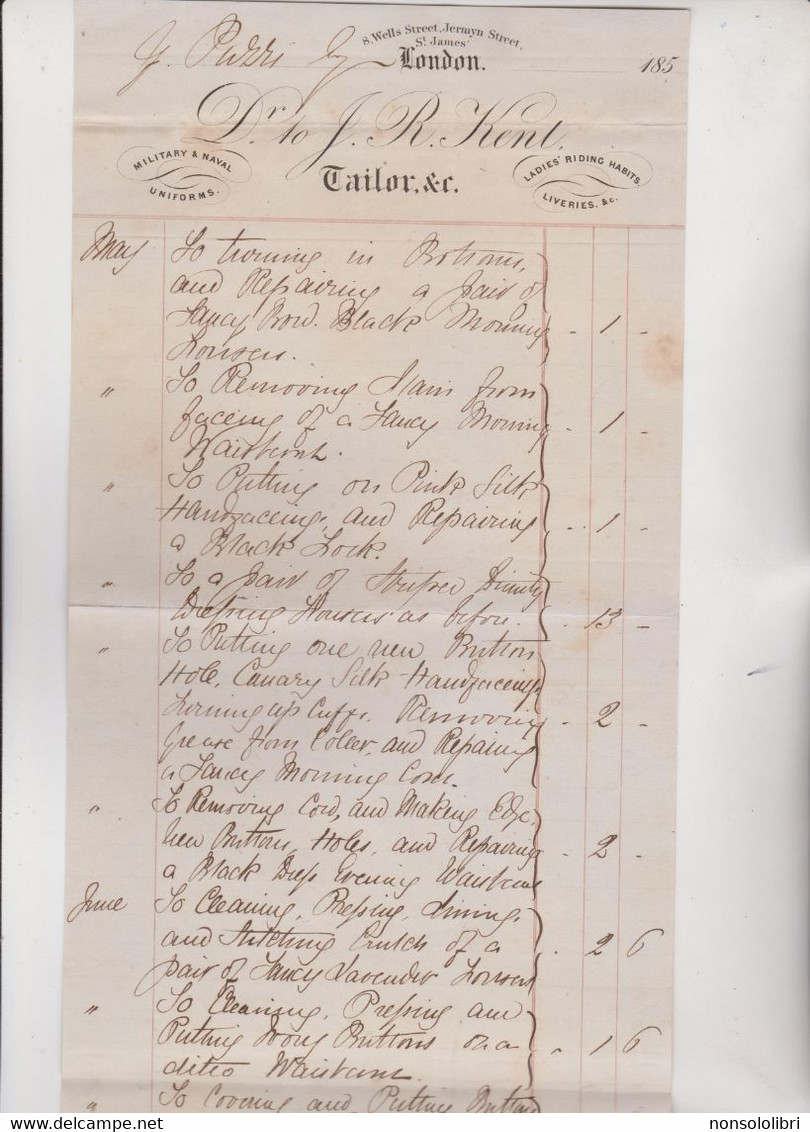 8, Wells Street, Jermyn Street,
St. James'
G. Puzzi Esq London. 185
Dr. to J. R. Kent,
MILITARY & NAVAL UNIFORMS.
Tailor, &c.
LADIES' RIDING HABITS. LIVERIES, &c.
May To turning in Bottoms,
and Repairing a pair of
Fancy Bord. Black Morning - 1 -
Trousers.
" To Removing Stain from
faceing of a Fancy Morning - 1 -
Waistcoat.
" To Putting on Pink Silk
Handfaceings, and Repairing - 1 -
a Black Frock.
" To a pair of Striped Dimity
Dressing Trousers as before. - 13 -
" To Putting one new Button
Hole, Canary Silk Handfaceings
turning up Cuffs. Removing - 2 -
Grease from Coller, and Repairing
a Fancy Morning Coat.
" To Removing Cord, and Making Edge,
New Buttons, Holes, and Repairing - 2 -
a Black Dress Evening Waistcoat
June To Cleaning, Pressing, Lining,
and Stitching Crutch of a - 2 6
pair of Fancy Lavender Trousers
" To Cleaning, Pressing and
Putting Ivory Buttons on a " 1 6
ditto Waistcoat.
" To Covering and Putting Buttons
nonsololibri